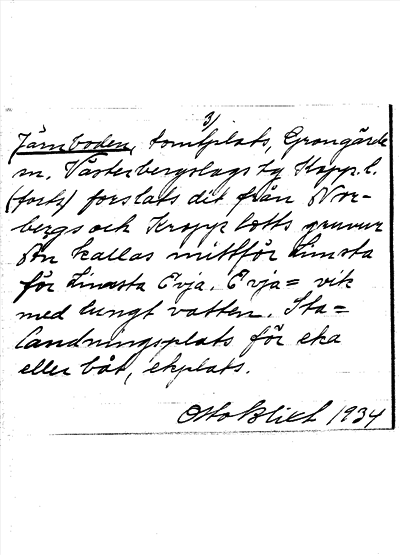 3/
Järnboden, tomtplats, Grangärde
m. Västerbergslags tg Kopp. l.
(forts) forslats dit från Nor-
bergs och Kropp totts gruvur
Ån kallas mittför Limsta
för Limsta Evja. Evja = vik
med lungt vatten. Sta=
landningsplats för eka
eller båt, ekplats.
Otto Blixt 1934